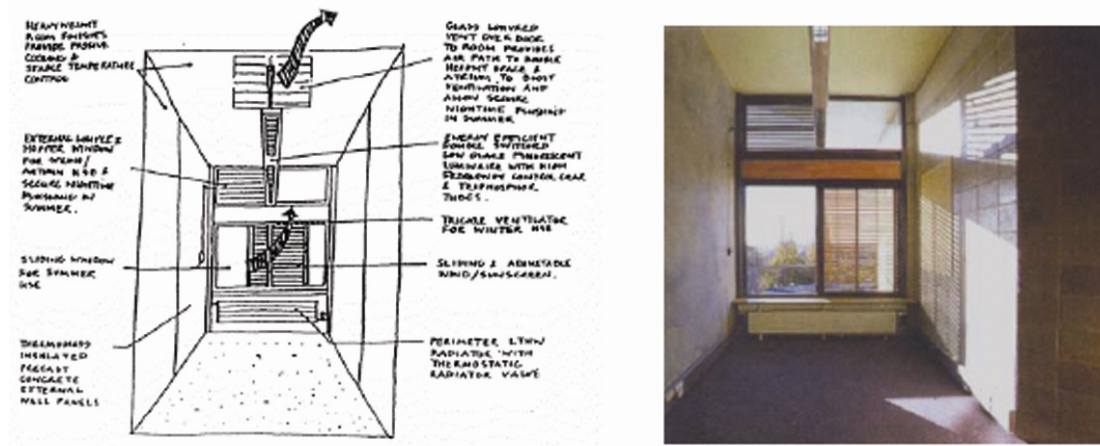 HEAVYWEIGHT
ROOM FINISHES
PROVIDE PASSIVE
COOLING &
STABLE TEMPERATURE
CONTROL
EXTERNAL LOUVRE &
HOPPER WINDOW
FOR
AUTUMN USE &
SECURE NIGHTTIME
IN
SUMMER.
SLIDING WINDOW
FOR SUMMER
USE
THERMOMASS
INSULATED
PRECAST
CONCRETE
EXTERNAL
WALL PANELS
GLASS LOUVRED
VENT OVER DOOR
TO ROOM PROVIDES
AIR PATH TO DOUBLE
HEIGHT SPACE &
ATRIUM, TO BOOST
VENTILATION AND
ALLOW SECURE
NIGHTTIME
IN SUMMER
ENERGY EFFICIENT
DOUBLE SWITCHED
LOW GLARE FLUORESCENT
LUMINAIRE WITH HIGH
FREQUENCY CONTROL GEAR
& TRIPHOSPHOR
TUBES.
TRICKLE VENTILATOR
FOR WINTER USE
SLIDING & ADJUSTABLE
WIND/SUNSCREEN.
PERIMETER LTHW
RADIATOR WITH
THERMOSTATIC
RADIATOR VALVE